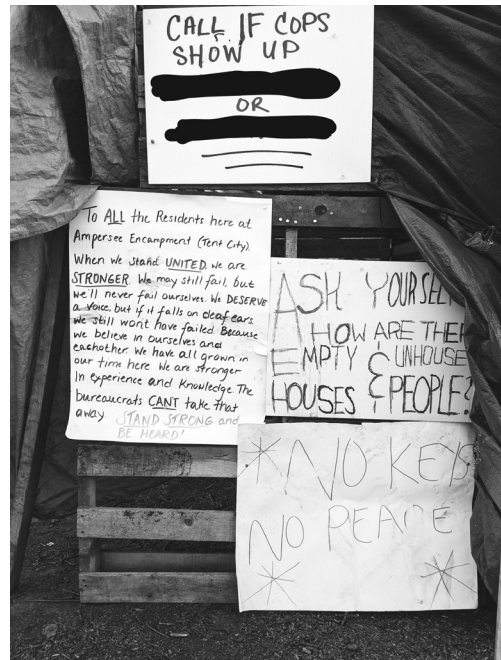 CALL IF COPS
SHOW UP
OR
To ALL the Residents here at
Ampersee Encampment (Tent City).
When we stand UNITED, we are
STRONGER. We may still fail, but
we'll never fail ourselves. We DESERVE
a voice, but if it falls on deaf ears
we still wont have failed Because
we believe in ourselves and
eachother. We have all grown in
our time here. We are stronger
In experience and Knowledge. The
bureaucrats CANT take that
away. STAND STRONG and
BE HEARD!
ASK YOURSELF
HOW ARE THER
EMPTY & UNHOUSE
HOUSES PEOPLE?
*NO KEYS
NO PEACE
* *